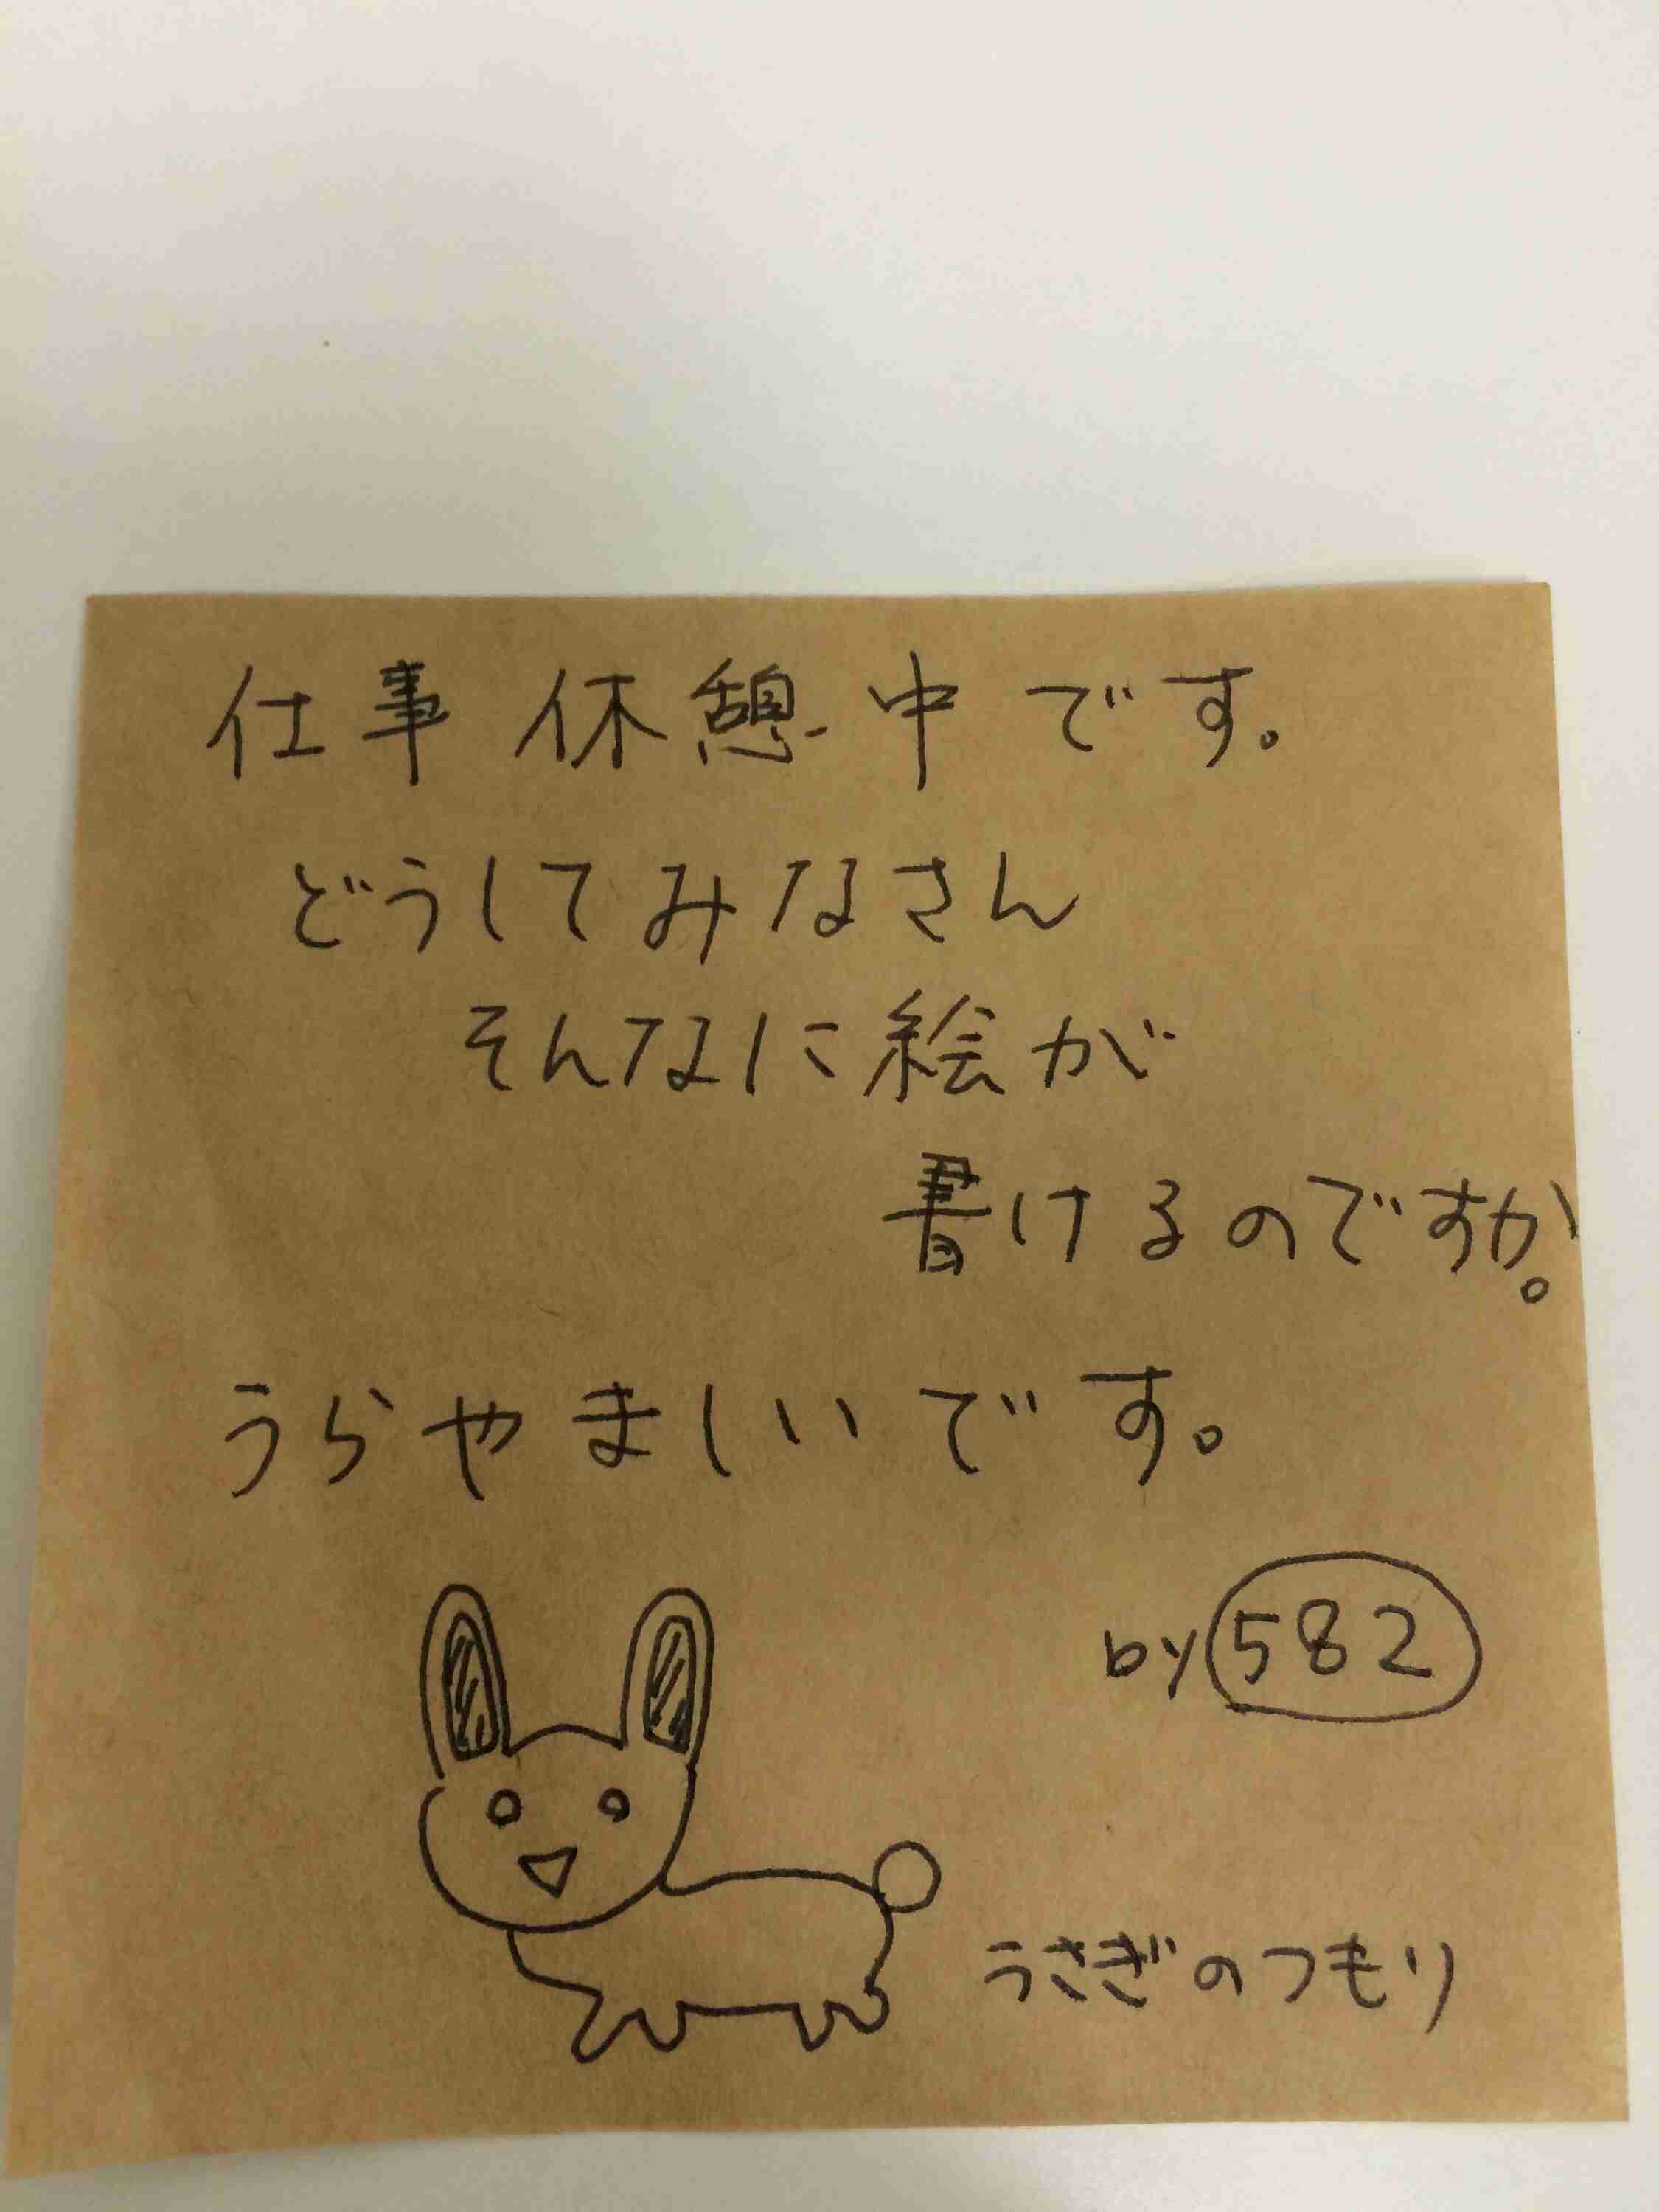 仕事休憩中です。
どうしてみなさん
そんなに絵が
書けるのですか。
うらやましいです。
by 582
うさぎのつもり